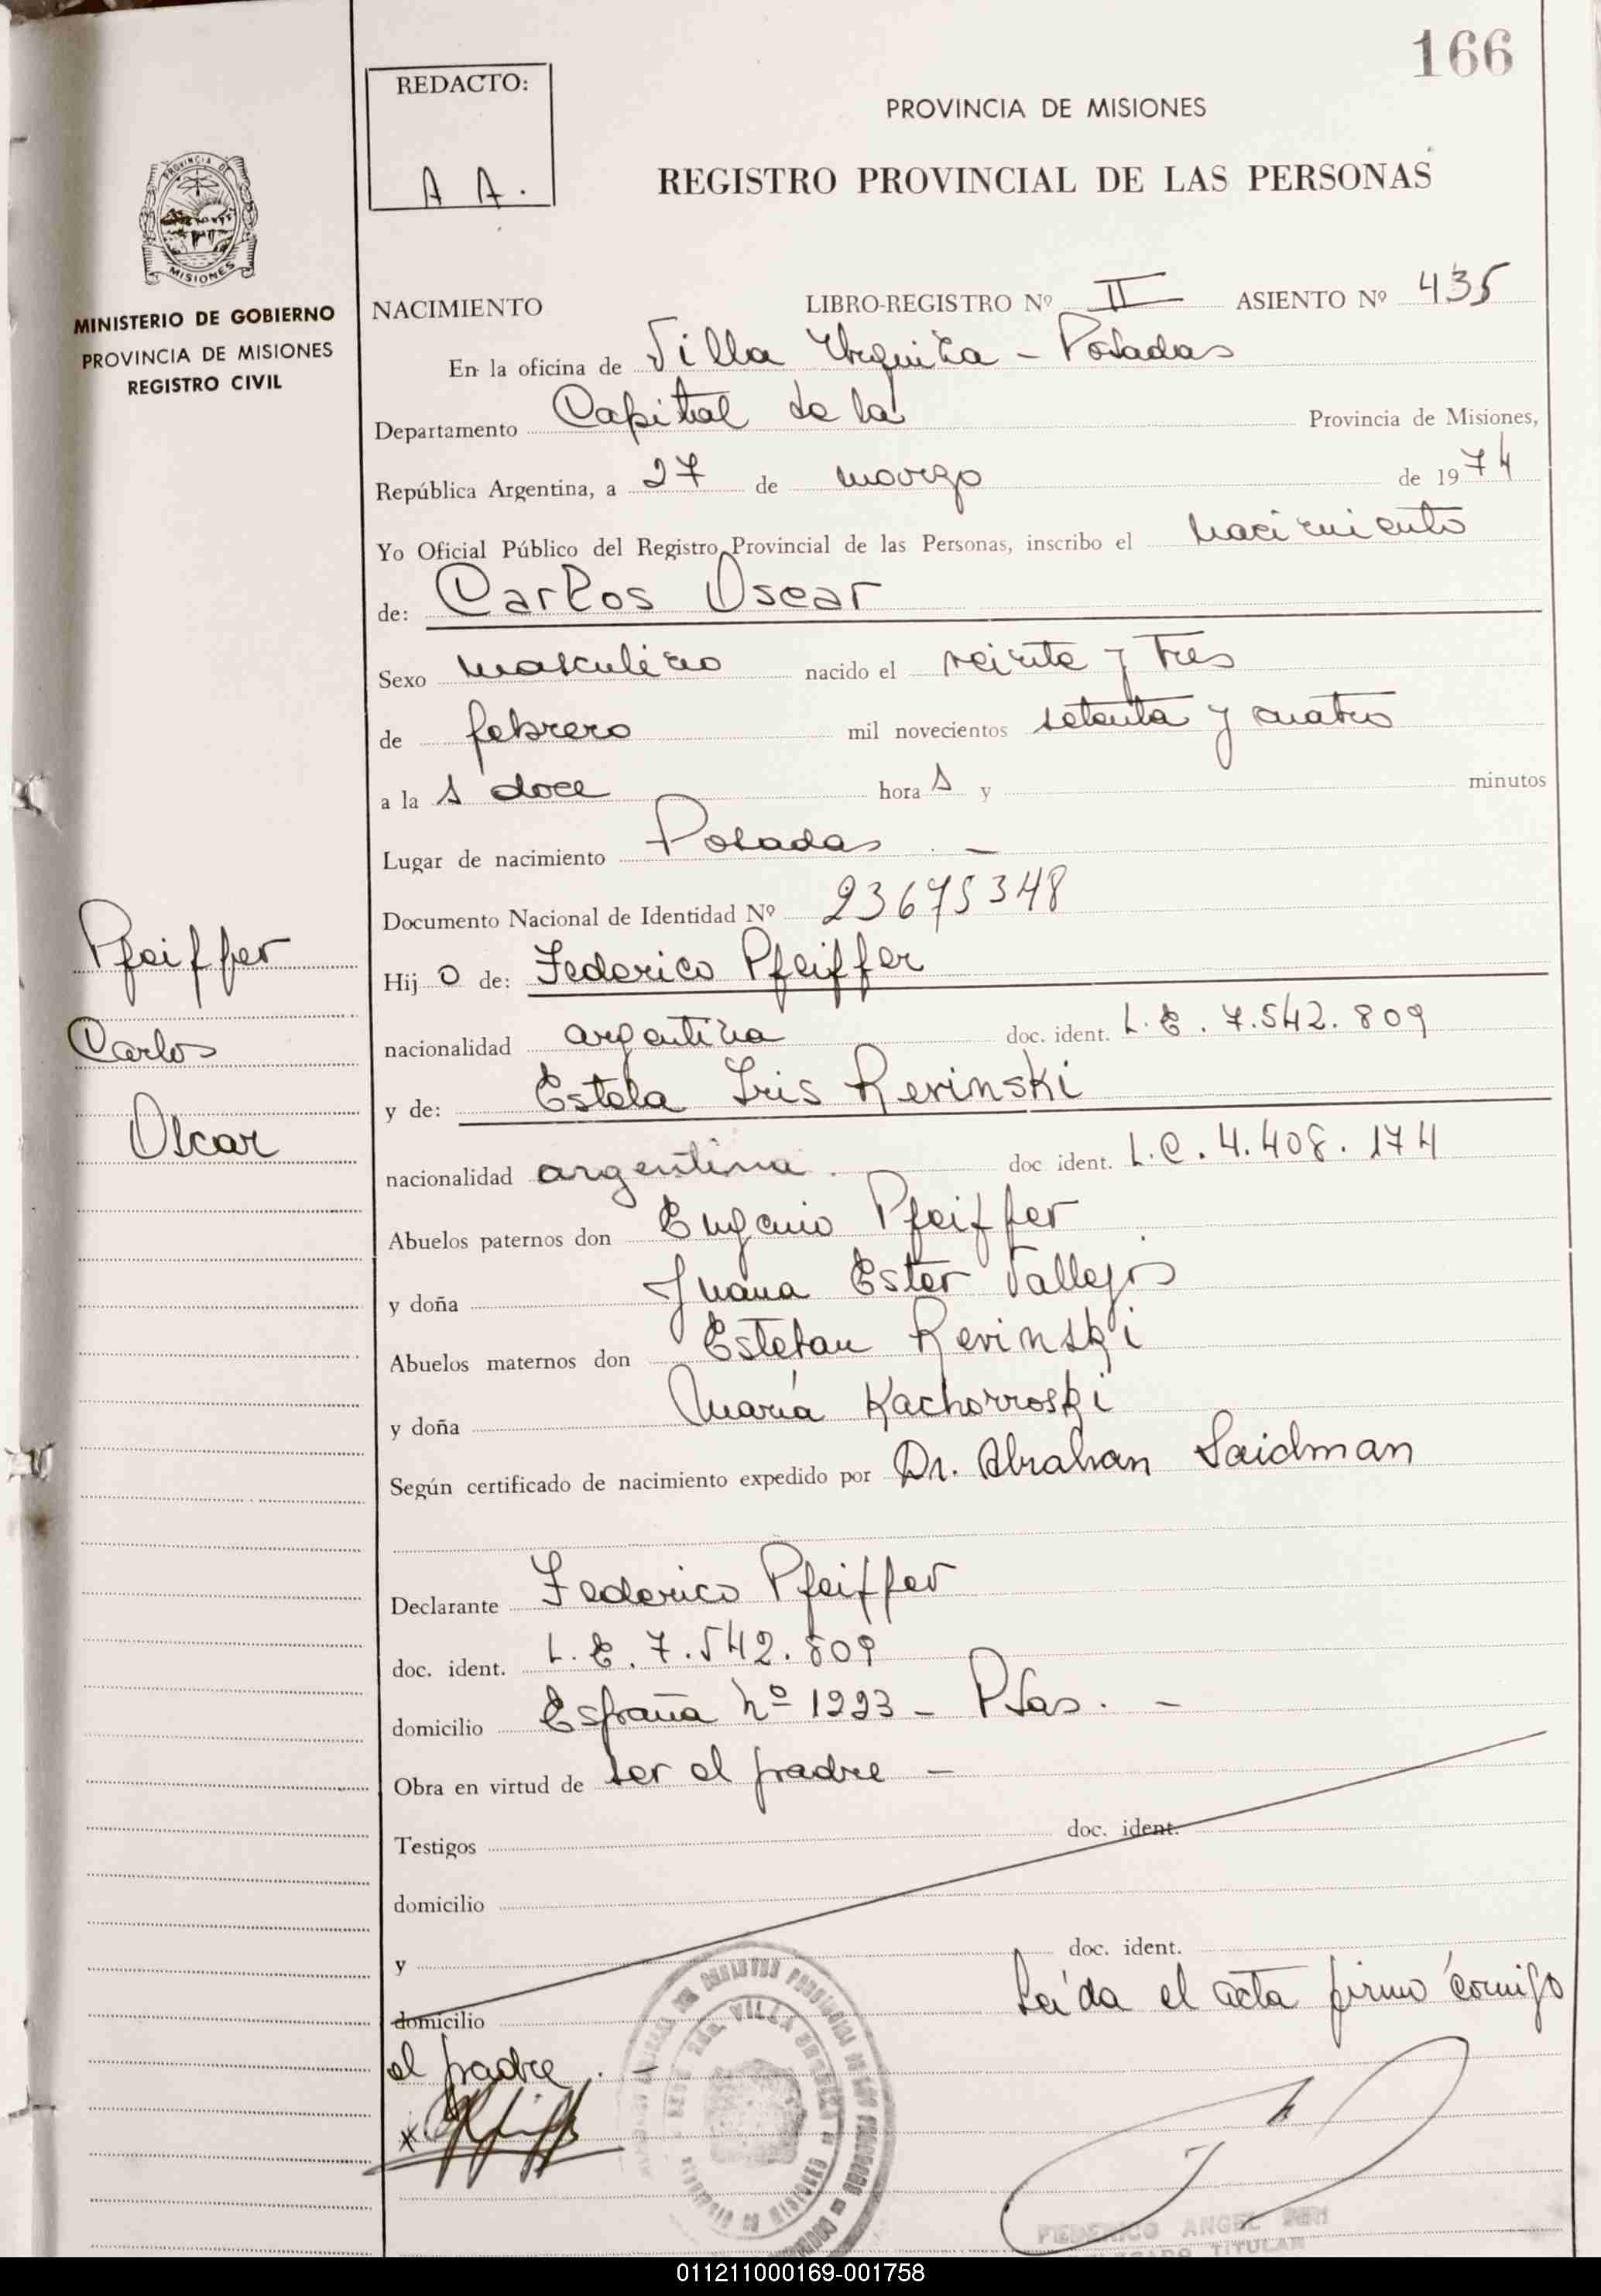 166
REDACTO:
A A.
PROVINCIA DE MISIONES
REGISTRO PROVINCIAL DE LAS PERSONAS
PROVINCIA DE
MISIONES
MINISTERIO DE GOBIERNO
PROVINCIA DE MISIONES
REGISTRO CIVIL
NACIMIENTO LIBRO-REGISTRO Nº II ASIENTO Nº 435
En la oficina de Villa Urquiza - Posadas
Departamento Capital de la Provincia de Misiones,
República Argentina, a 27 de marzo de 1974
Yo Oficial Público del Registro Provincial de las Personas, inscribo el nacimiento
de: Carlos Oscar
Sexo masculino nacido el veinte y tres
de febrero mil novecientos setenta y cuatro
a la s doce hora s y minutos
Lugar de nacimiento Posadas . -
Documento Nacional de Identidad Nº 23675348
Pfeiffer
Carlos
Oscar
Hij o de: Federico Pfeiffer
nacionalidad argentina doc. ident. L.E. 7.542.809
y de: Estela Iris Revinski
nacionalidad argentina. doc ident. L.C. 4.408.174
Abuelos paternos don Eugenio Pfeiffer
y doña Juana Ester Vallejos
Abuelos maternos don Esteban Revinski
y doña María Kachorroski
Según certificado de nacimiento expedido por Dr. Abrahan Saidman
Declarante Federico Pfeiffer
doc. ident. L.E. 7.542.809
domicilio España nº 1223 - Psas. -
Obra en virtud de ser el padre -
Testigos doc. ident.
domicilio
y doc. ident.
domicilio Leída el acta firmó conmigo
el padre. -
FEDERICO ANGEL
TITULAR
011211000169-001758